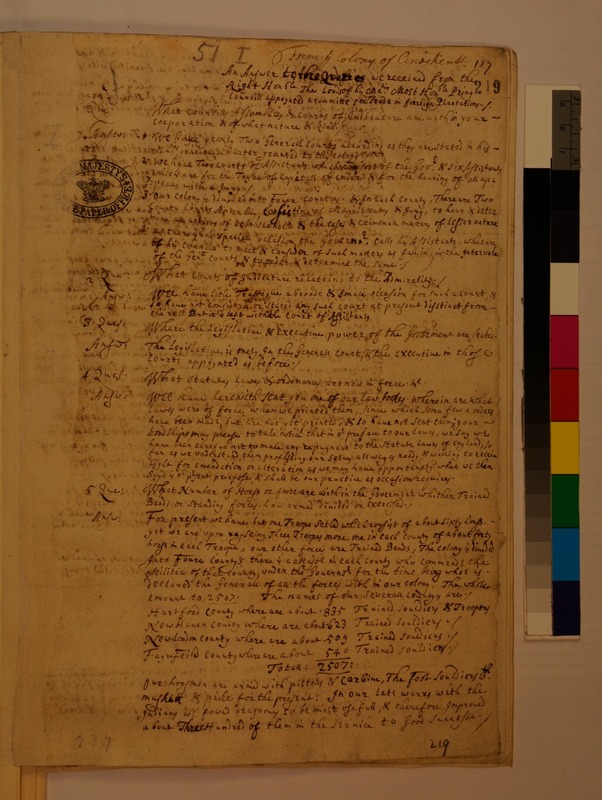 51 I From ye Colony of Conockecutt. 187
An Answer to the Queries we received from the 219
Right Honble The Lords of his Maties Most Honble Privy
Councill appoynted a committee for Trade & forreign Plantations./
Que: What councils, Assemblies, & Courts of Judicature are with in your
Corporation & of what nature & kind.
Answr: 1. We have yearly Two Generall courts according as they are stated in his
charter, granted to this colony.
2. We have Two courts of Assistants which consist of the Govr. & six Assistants
which are for the Tryall of capitall offenders & for the hearing of all apa
peals with a Jury./
3. Our Colony is divided into fowre countys. & In each county, There are Two
County Courts Annually, consisting of & Jury, to hear & deter
mine all actions of & the lese & criminall matters of lesser nature
upon any speciall occasion the governor. calls his Assistants, who are
of his councill to meet & consider of such matters as fall in, in the intervals
of the Genll courts & to determine the same./
2 Que: What Courts of Judicature relateing to the Admirality./
Answ: Wee have litle Traffique abroade & small occasion for such a court, &
so have not considered or Stated any such court at present distinct from
the rest But it is left with the Court of Assistants
3 Ques: Where the Legislative & Executive power of the Government are seated.
Answ: The Legislative is onely In the Generall Court, & the executive in those
Courts appoynted as before./
4 Ques: What Statutes Lawes & ordinances are now in force. &c
Answ: Wee have herewith Sent you one of our law books. wherein are what
Lawes were of force, when we printed them, Since which Som few orders
have been made, but are not yet printed, & so have not sent them; your
Lordships may please to take notice that in or preface to our Lawes, we say we
have been carefull not to make any repugnant to the Statute laws of England, so
far as we understand them professing our selves allways ready, & willing to receive
light for emendation or alteration as we may have oppertunety; what we then
sayd is or present purpose & shall be our practice as occasion requires:
5 Que: What Number of Horss or foot are with in the Government whither Trained
Bands or Standing forces: how armed devided or exercised:
Answ: For present we have but one Troope Setled which consist of about Sixty horss.
yet we are upon rayseing Three Troopes more one in each county of about forty
horss in each Troope, our other forces are Trained Bands, The Colony is devided
Into Fowre Countys there is a in each county who commands the
Militia of that County, under the Governor for the time being who is
declared the Generall of all the forces with in our Colony. The whole
amount to 2507. The names of our Severall Countys are:
Hartford County where are about: 835 Trained Souldiers & Troopers
Newhaven County where are about: 623 Trained Souldiers./
Newlondon County where are about 509 Trained Souldiers./
Fayrfeild County where are about 540 Trained Souldiers./
Total: 2507:
Our horsmen are armed with pistolls & Carbine, The foot Souldiers wth
muskett & pike for the present: In our late warrs with the
Indians we found dragoons to be most usefull, & therefore Improved
about Three Hundred of them in the Service to good Successe./
219
237